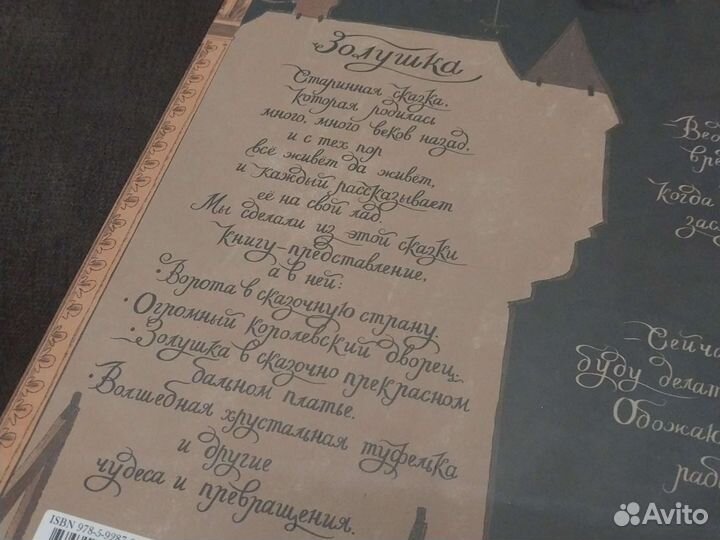 Золушка
Старинная сказка,
которая родилась
много, много веков назад,
и с тех пор
всё живёт да живёт,
и каждый рассказывает
её на свой лад.
Мы сделали из этой сказки
книгу-представление,
а в ней:
• Ворота в сказочную страну.
• Огромный королевский дворец.
• Золушка в сказочно прекрасном
бальном платье.
• Волшебная хрустальная туфелька
и другие
чудеса и превращения.
Когда
буду
ISBN 978-5-9287
Avito